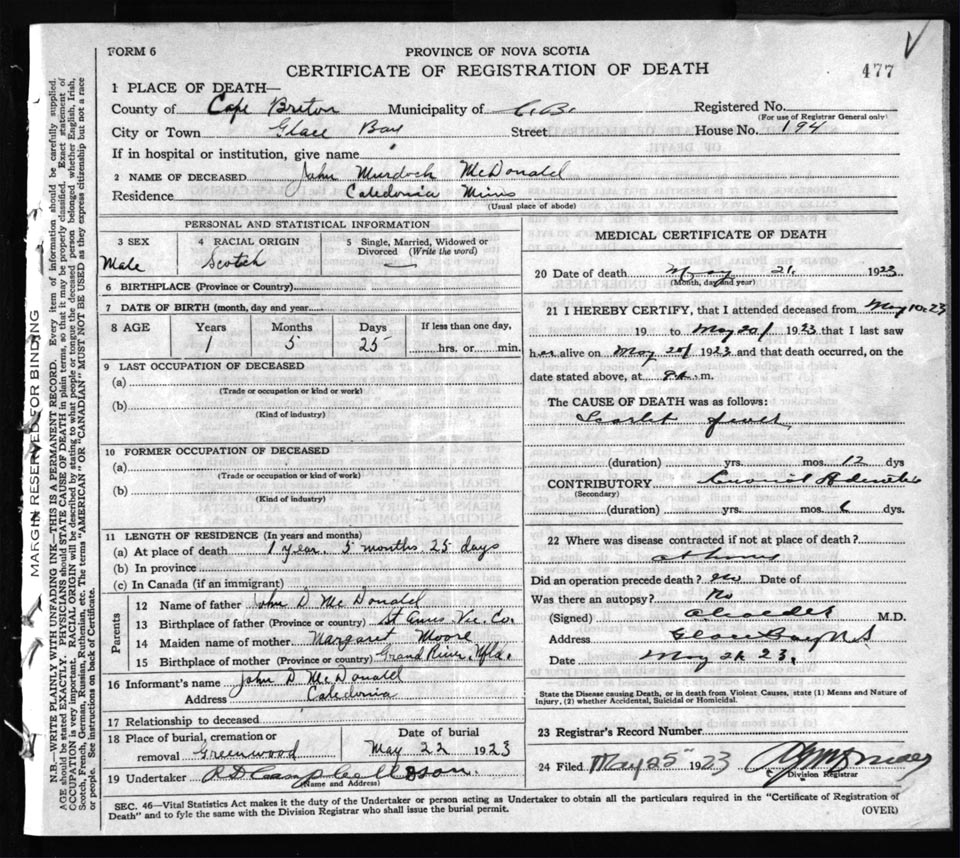 FORM 6
PROVINCE OF NOVA SCOTIA
CERTIFICATE OF REGISTRATION OF DEATH
477
1 PLACE OF DEATH—
County of Cape Breton Municipality of C.B. Registered No.
(For use of Registrar General only)
City or Town Glace Bay Street House No. 194
If in hospital or institution, give name
2 NAME OF DECEASED John Murdock McDonald
Residence Caledonia Mines
(Usual place of abode)
PERSONAL AND STATISTICAL INFORMATION
3 SEX
Male
4 RACIAL ORIGIN
Scotch
5 Single, Married, Widowed or
Divorced (Write the word)
6 BIRTHPLACE (Province or Country)
7 DATE OF BIRTH (month, day and year
8 AGE Years Months Days If less than one day,
1 5 25 hrs. or min.
9 LAST OCCUPATION OF DECEASED
(a)
(Trade or occupation or kind or work)
(b)
(Kind of industry)
10 FORMER OCCUPATION OF DECEASED
(a)
(Trade or occupation or kind of work)
(b)
(Kind of industry)
11 LENGTH OF RESIDENCE (In years and months)
(a) At place of death 1 year 5 months 25 days
(b) In province
(c) In Canada (if an immigrant)
Parents
12 Name of father John D. McDonald
13 Birthplace of father (Province or country) St Anns Vic. Co.
14 Maiden name of mother Margaret Moore
15 Birthplace of mother (Province or country) Grand River, Nfld.
16 Informant's name John D McDonald
Address Caledonia
17 Relationship to deceased
18 Place of burial, cremation or
removal Greenwood
Date of burial
May 22 1923
19 Undertaker A D Campbell & Son.
(Name and Address)
MEDICAL CERTIFICATE OF DEATH
20 Date of death May 21, 1923
(Month, day and year)
21 I HEREBY CERTIFY, that I attended deceased from May 10 23
19 to May 20/ 1923 that I last saw
h alive on May 20/ 1923 and that death occurred, on the
date stated above, at m.
The CAUSE OF DEATH was as follows:
Scarlet fever
(duration) yrs. mos. 12 dys
CONTRIBUTORY Cervical Adenitis
(Secondary)
(duration) yrs. mos. 6 dys.
22 Where was disease contracted if not at place of death?
at home
Did an operation precede death? No Date of
Was there an autopsy? No
(Signed) M.D.
Address Glace Bay N.S
Date May 21. 23.
State the Disease causing Death, or in death from Violent Causes, state (1) Means and Nature of
Injury, (2) whether Accidental, Suicidal or Homicidal.
23 Registrar's Record Number
24 Filed May 25 1923
Division Registrar
SEC. 46—Vital Statistics Act makes it the duty of the Undertaker or person acting as Undertaker to obtain all the particulars required in the "Certificate of Registration of
Death" and to fyle the same with the Division Registrar who shall issue the burial permit.
(OVER)
MARGIN RESERVED FOR BINDING
N.B.—WRITE PLAINLY WITH UNFADING INK—THIS IS A PERMANENT RECORD. Every item of information should be carefully supplied.
AGE should be stated EXACTLY. PHYSICIANS should STATE CAUSE OF DEATH in plain terms, so that it may be properly classified. Exact statement of
OCCUPATION is very important. RACIAL ORIGIN will be described by stating to what people or tongue the deceased person belonged whether English, Irish,
Scotch, French, German, Russian, Ruthenian, etc. The terms "AMERICAN" OR "CANADIAN" MUST NOT BE USED as they express citizenship but not a race
or people. See instructions on back of Certificate.